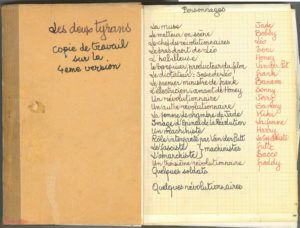 Les deux tyrans
Copie de travail
sur la
4ème version
Personnages
La muse Jade
Le metteur en scène Bobby
Le chef des révolutionnaires Léo
Le président de Léo
L'habilleuse Honey
Le banquier producteur du film
Le dictateur: sosie de Léo Frank
Le premier ministre de Frank Banane
L'électricien amant de Honey
Un révolutionnaire
Un autre révolutionnaire
La femme de chambre de Jade Kiki
Image d'Epinal de la Révolution La femme
Un machiniste Harry
Rôle interprété par Van der Putt
Le fasciste machinistes
L'anarchiste Bosco
Un troisième révolutionnaire Freddy
Quelques soldats
Quelques révolutionnaires